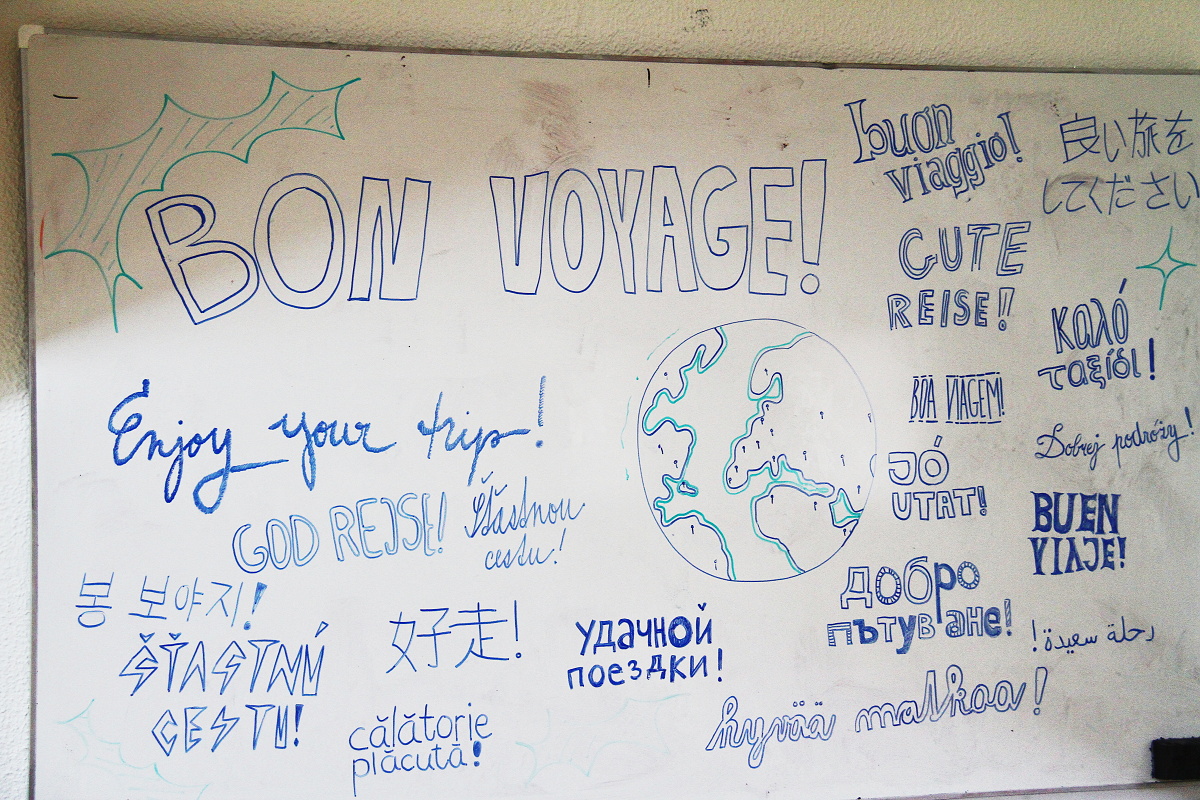 BON VOYAGE!
buon
viaggio!
良い旅を
してください
GUTE
REISE!
καλό
ταξίδι!
BOA VIAGEM!
Enjoy your trip!
Dobrej podróży!
JÓ
UTAT!
GOD REJSE!
Šťastnou
cestu!
BUEN
VIAJE!
봉 보야지!
好走!
удачной
поездки!
Добро
пътуване!
رحلة سعيدة!
ŠŤASTNÚ
CESTU!
călătorie
plăcută!
hyvää matkaa!